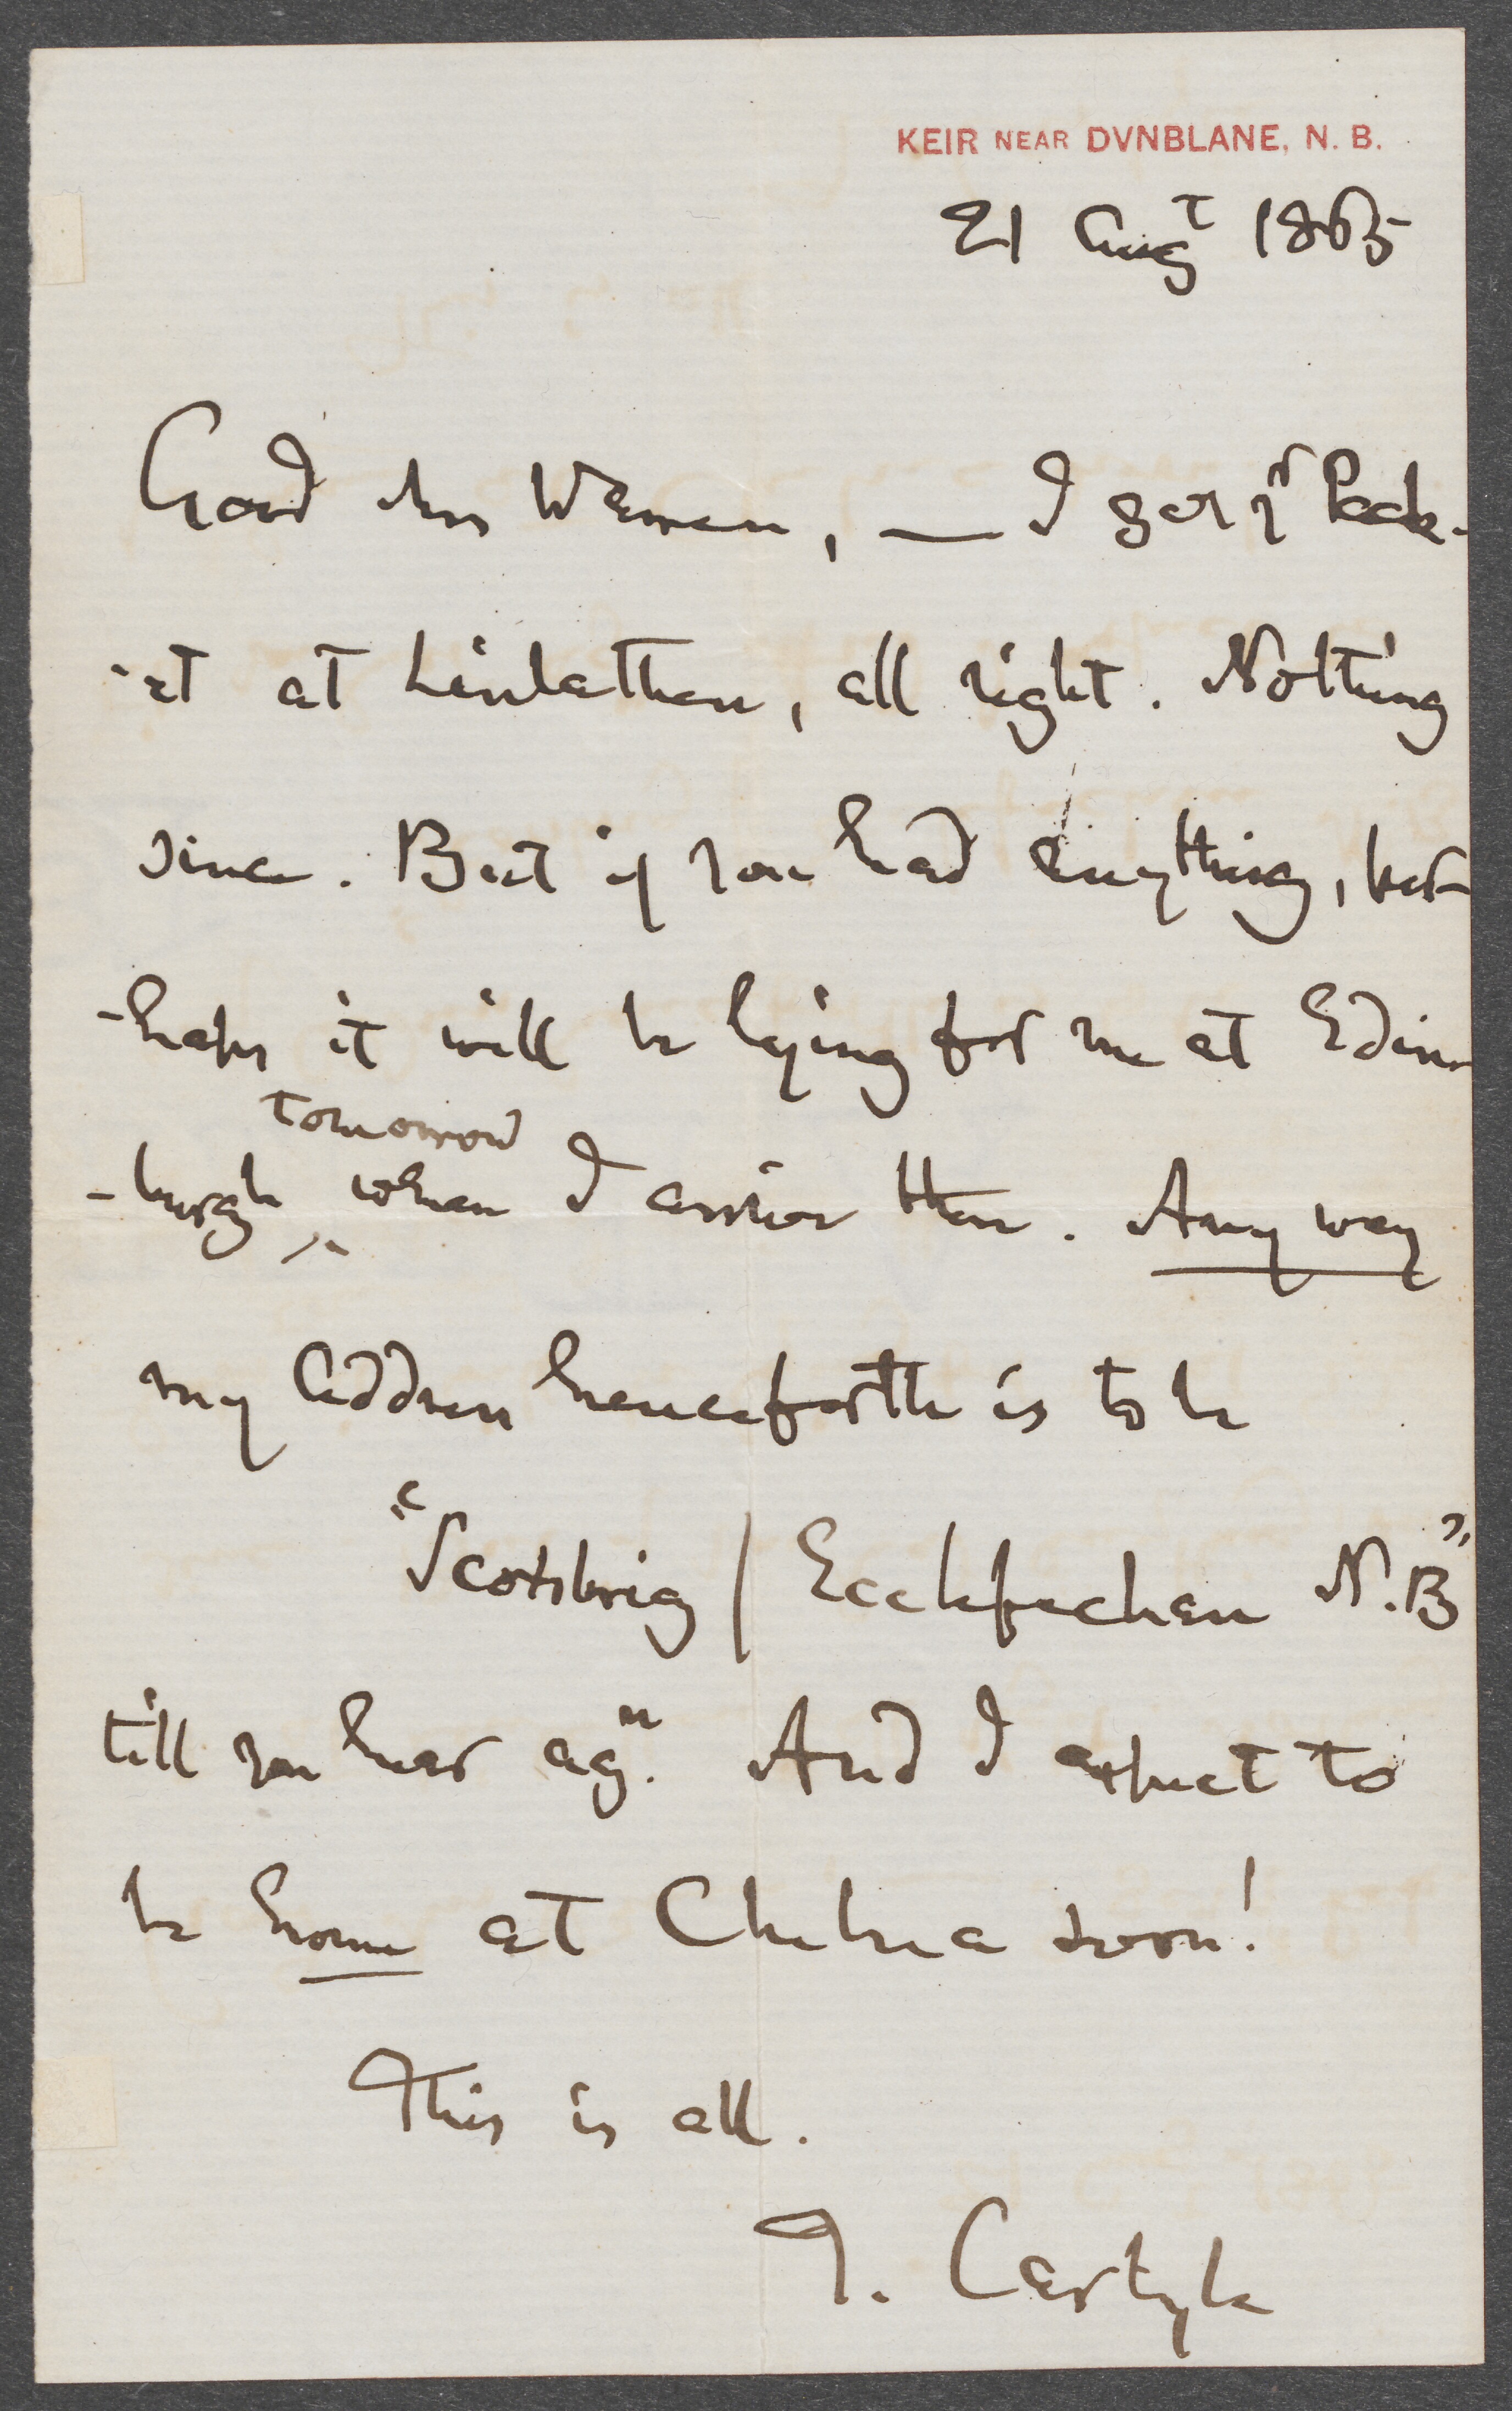 KEIR NEAR DVNBLANE, N. B.
21 Augt 1865
Good Mrs Warren, — I got yr Pack-
-et at Linlathen, all right. Nothing
since. But if you had anything, per-
-haps it will be lying for me at Edin-
tomorrow
-burgh, when I arrive there. Any way
my Address henceforth is to be
"Scotsbrig / Ecclefechan N.B"
till you hear agn. And I expect to
be home at Chelsea soon!
This is all.
T. Carlyle